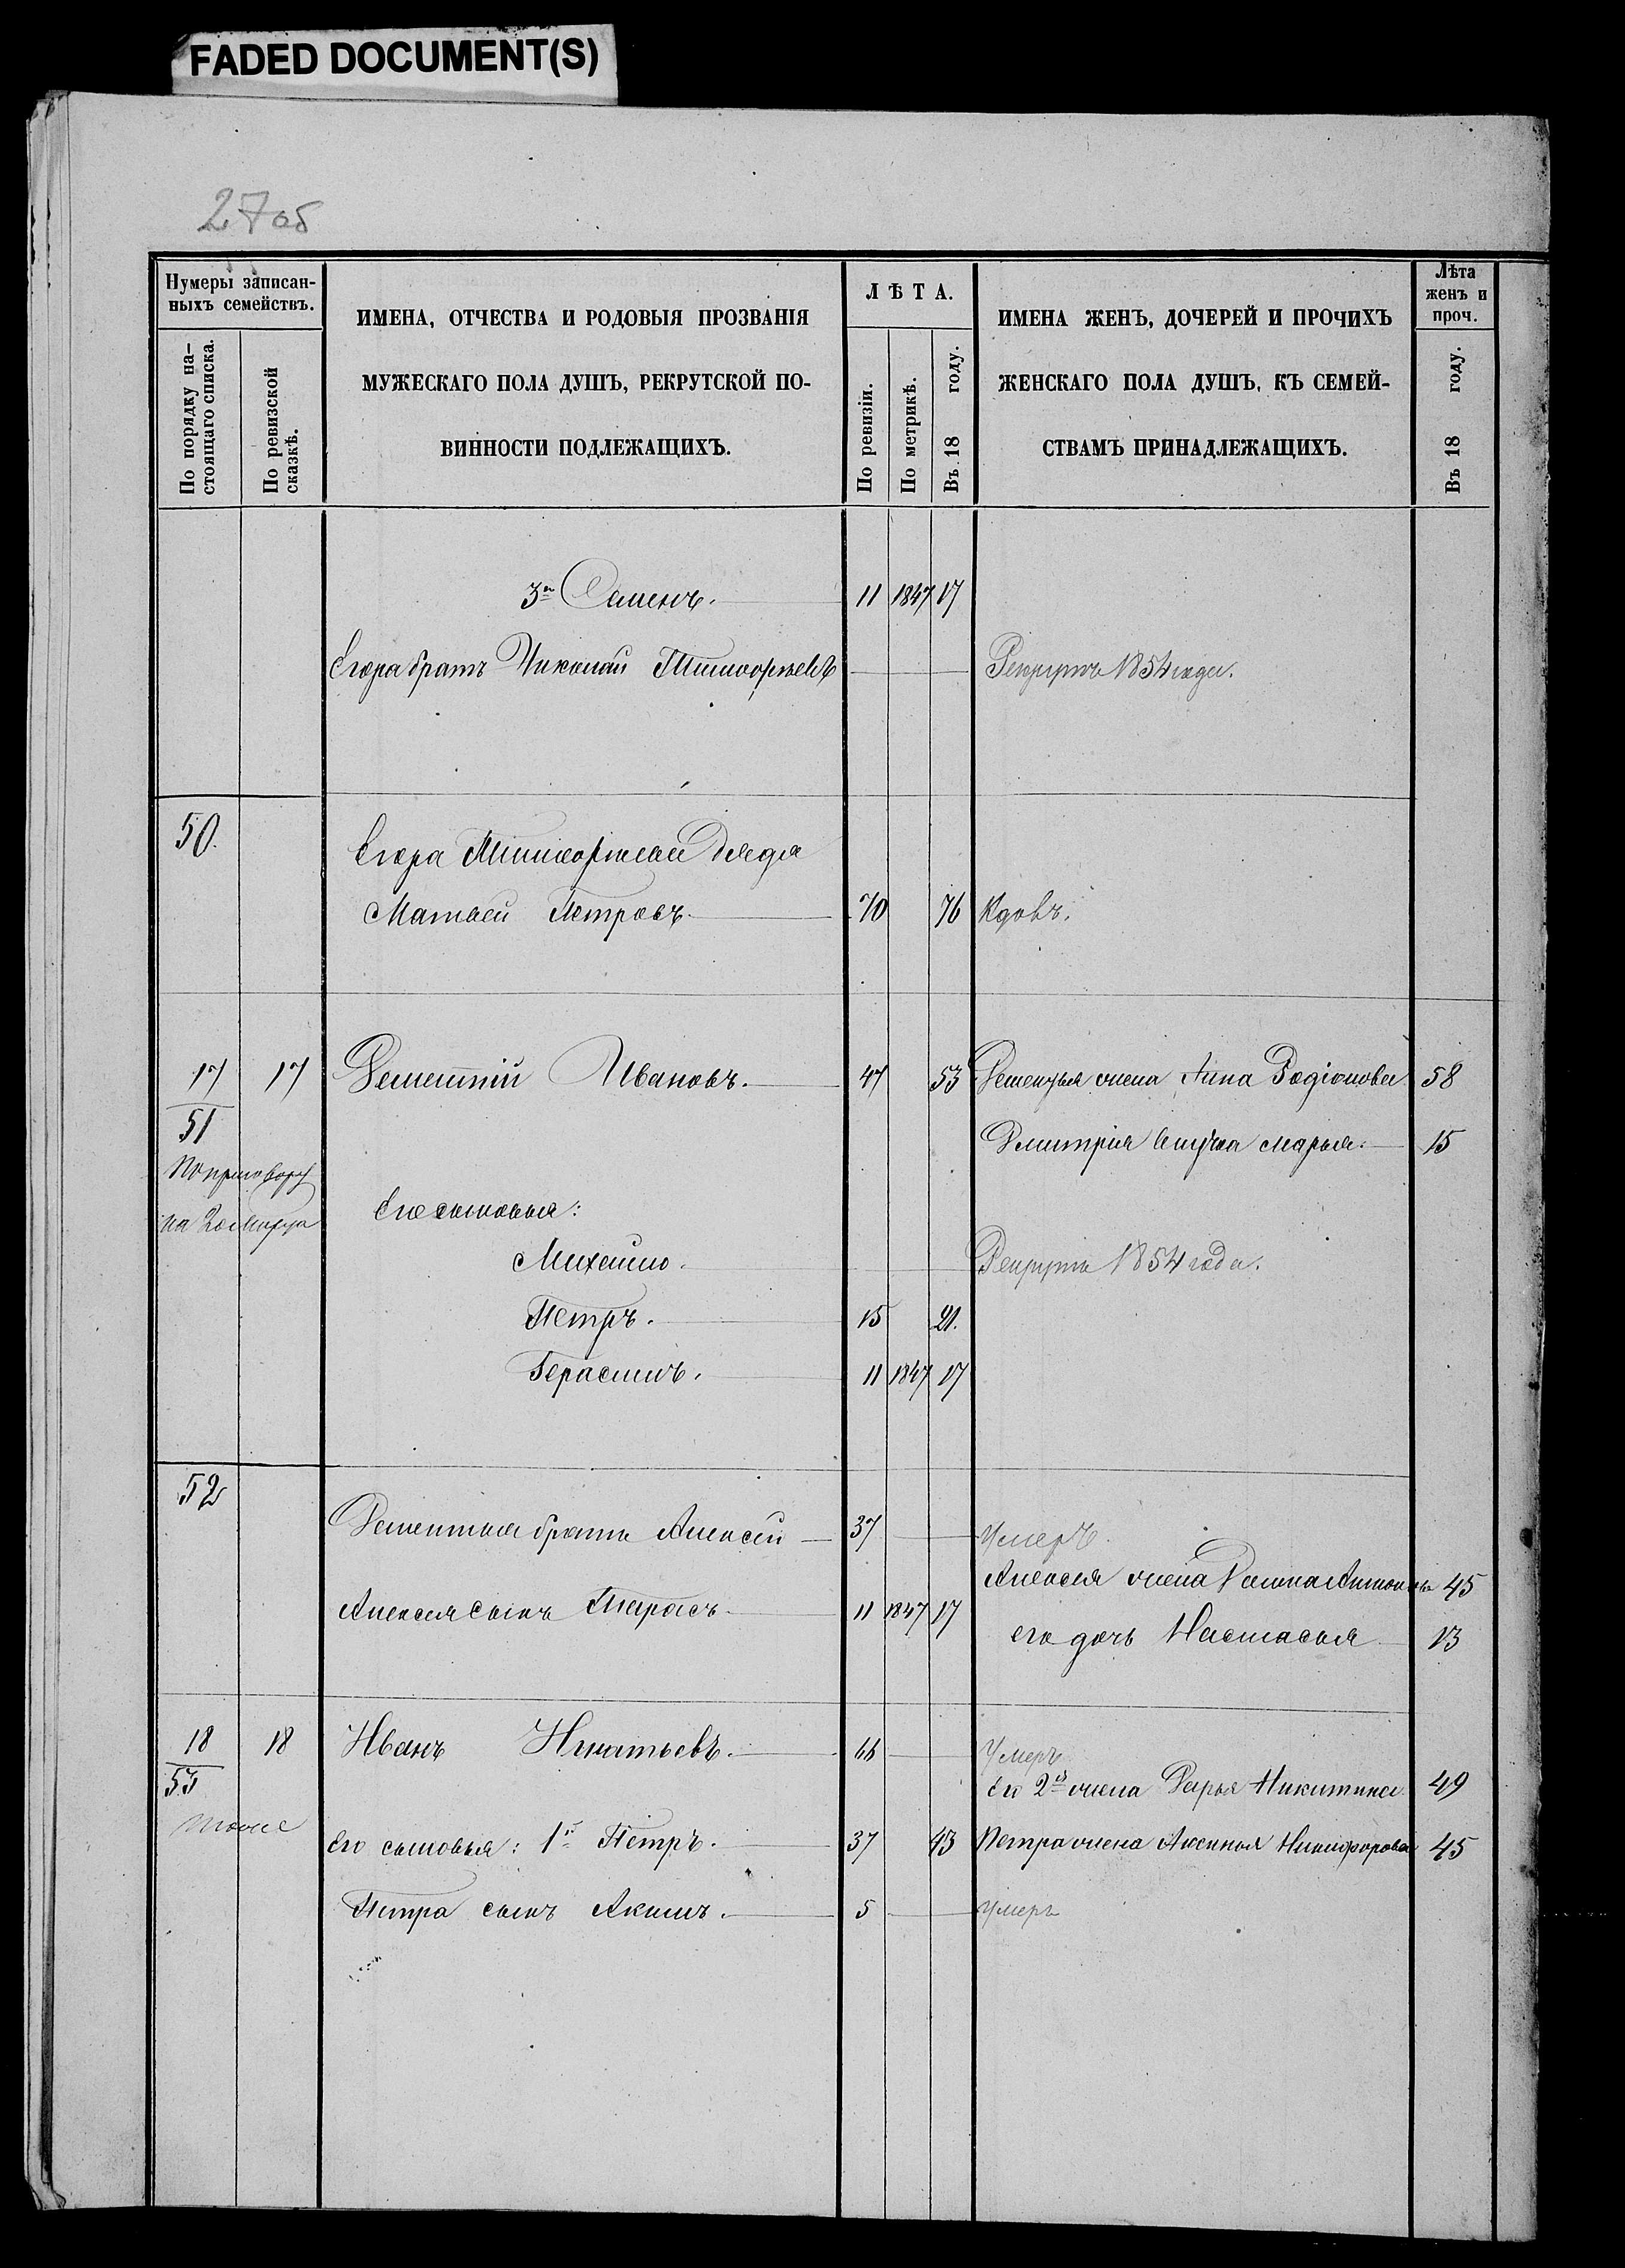 FADED DOCUMENT(S)
27об
Нумеры записан-
ныхъ семействъ.
По порядку на-
стоящаго списка.
По ревизской
сказкѣ.
ИМЕНА, ОТЧЕСТВА И РОДОВЫЯ ПРОЗВАНІЯ
МУЖЕСКАГО ПОЛА ДУШЪ, РЕКРУТСКОЙ ПО-
ВИННОСТИ ПОДЛЕЖАЩИХЪ.
ЛѢТА.
По ревизіи.
По метрикѣ.
Въ 18 году.
ИМЕНА ЖЕНЪ, ДОЧЕРЕЙ И ПРОЧИХЪ
ЖЕНСКАГО ПОЛА ДУШЪ, КЪ СЕМЕЙ-
СТВАМЪ ПРИНАДЛЕЖАЩИХЪ.
Лѣта
женъ и
проч.
Въ 18 году.
3й Семенъ. 11 1847 17
Егора братъ Николай Тимофѣевъ Рекрутъ 1854 года.
50.
Егора Тимофѣева дядя
Матвей Петровъ. 70 76 Вдовъ.
17 17 Дементій Ивановъ. 47 53 Дементья жена Анна Родіонова 58
51
Дмитрія внучка Марья. 15
По приговору
на
Его сыновья:
Михайло. Рекрутъ 1854 года.
Петръ. 15 21.
Герасимъ. 11 1847 17
52
Дементья братъ Алексей 37 Умеръ.
Алексея жена 45
Алексея сынъ Тарасъ 11 1847 17
его дочь Настасья 13
18 18 Иванъ Игнатьевъ. 66 Умеръ
53
Его 2я жена Дарья Никитина 49
тоже
Его сыновья: 1й Петръ. 37 43 Петра жена Аксинья Никифорова 45
Петра сынъ Акимъ. 5 умеръ